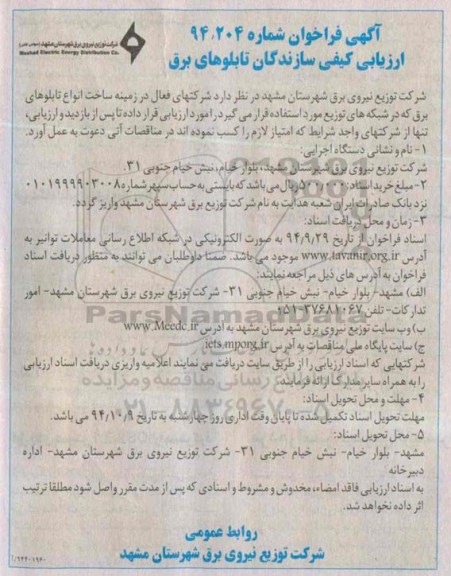 آگهی فراخوان شماره ۹۴٫۲۰۴
ارزیابی کیفی سازندگان تابلوهای برق
شرکت توزیع نیروی برق شهرستان مشهد
Mashad Electric Energy Distribution Co.
شرکت توزیع نیروی برق شهرستان مشهد در نظر دارد شرکتهای فعال در زمینه ساخت انواع تابلوهای
برق که در شبکه های توزیع مورد استفاده قرار می گیرد را مورد ارزیابی قرار داده تا پس از بازدید و ارزیابی،
تنها از شرکتهای واجد شرایط که امتیاز لازم را کسب نموده اند در مناقصات آتی دعوت به عمل آورد.
۱- نام و نشانی دستگاه اجرایی:
شرکت توزیع نیروی برق شهرستان مشهد، بلوار خیام، نبش خیام جنوبی ۳۱.
۲- مبلغ خرید اسناد ریال می باشد که بایستی به حساب سپهر شماره ۰۱۰۱۹۹۹۹۰۳۰۰۸
نزد بانک صادرات ایران شعبه هدایت به نام شرکت توزیع برق شهرستان مشهد واریز گردد.
۳- زمان و محل دریافت اسناد:
اسناد فراخوان از تاریخ ۹۴/۹/۲۹ به صورت الکترونیکی در شبکه اطلاع رسانی معاملات توانیر به
آدرس www.tavanir.org.ir موجود می باشد. ضمنا داوطلبان می توانند به منظور دریافت اسناد
فراخوان به آدرس های ذیل مراجعه نمایند:
الف) مشهد- بلوار خیام- نبش خیام جنوبی ۳۱- شرکت توزیع نیروی برق شهرستان مشهد- امور
تدارکات- تلفن ۳۷۶۸۱۰۶۷-۰۵۱
ب) وب سایت توزیع نیروی برق شهرستان مشهد به آدرس www.Meedc.ir
ج) سایت پایگاه ملی مناقصات به آدرس iets.mporg.ir
شرکتهایی که اسناد ارزیابی را از طریق سایت دریافت می نمایند اعلامیه واریزی دریافت اسناد ارزیابی
را به همراه سایر مدارک ارائه فرمایند.
۴- مهلت و محل تحویل اسناد:
مهلت تحویل اسناد تکمیل شده تا پایان وقت اداری روز چهارشنبه به تاریخ ۹۴/۱۰/۹ می باشد.
۵- محل تحویل اسناد:
مشهد- بلوار خیام- نبش خیام جنوبی ۳۱- شرکت توزیع نیروی برق شهرستان مشهد- اداره
دبیرخانه
به اسناد ارزیابی فاقد امضاء، مخدوش و مشروط و اسنادی که پس از مدت مقرر واصل شود مطلقا ترتیب
اثر داده نخواهد شد.
روابط عمومی
شرکت توزیع نیروی برق شهرستان مشهد
ParsNamadData
۰۲۱-۸۸۳۴۹۶۷۰